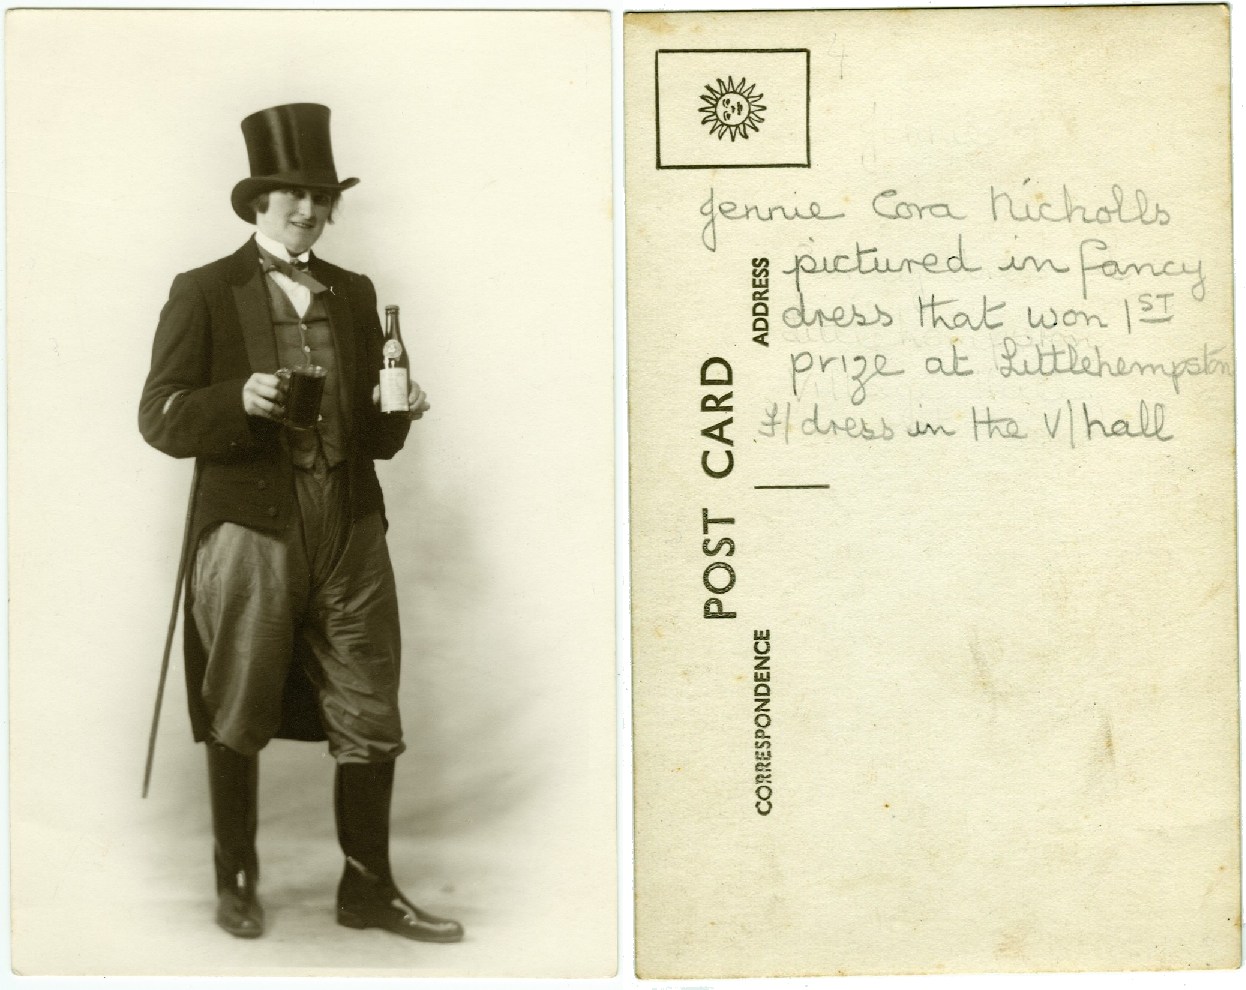 Jennie Cora Nicholls
pictured in fancy
dress that won 1ST
prize at Littlehempston
F/dress in the V/hall
POST CARD
ADDRESS
CORRESPONDENCE